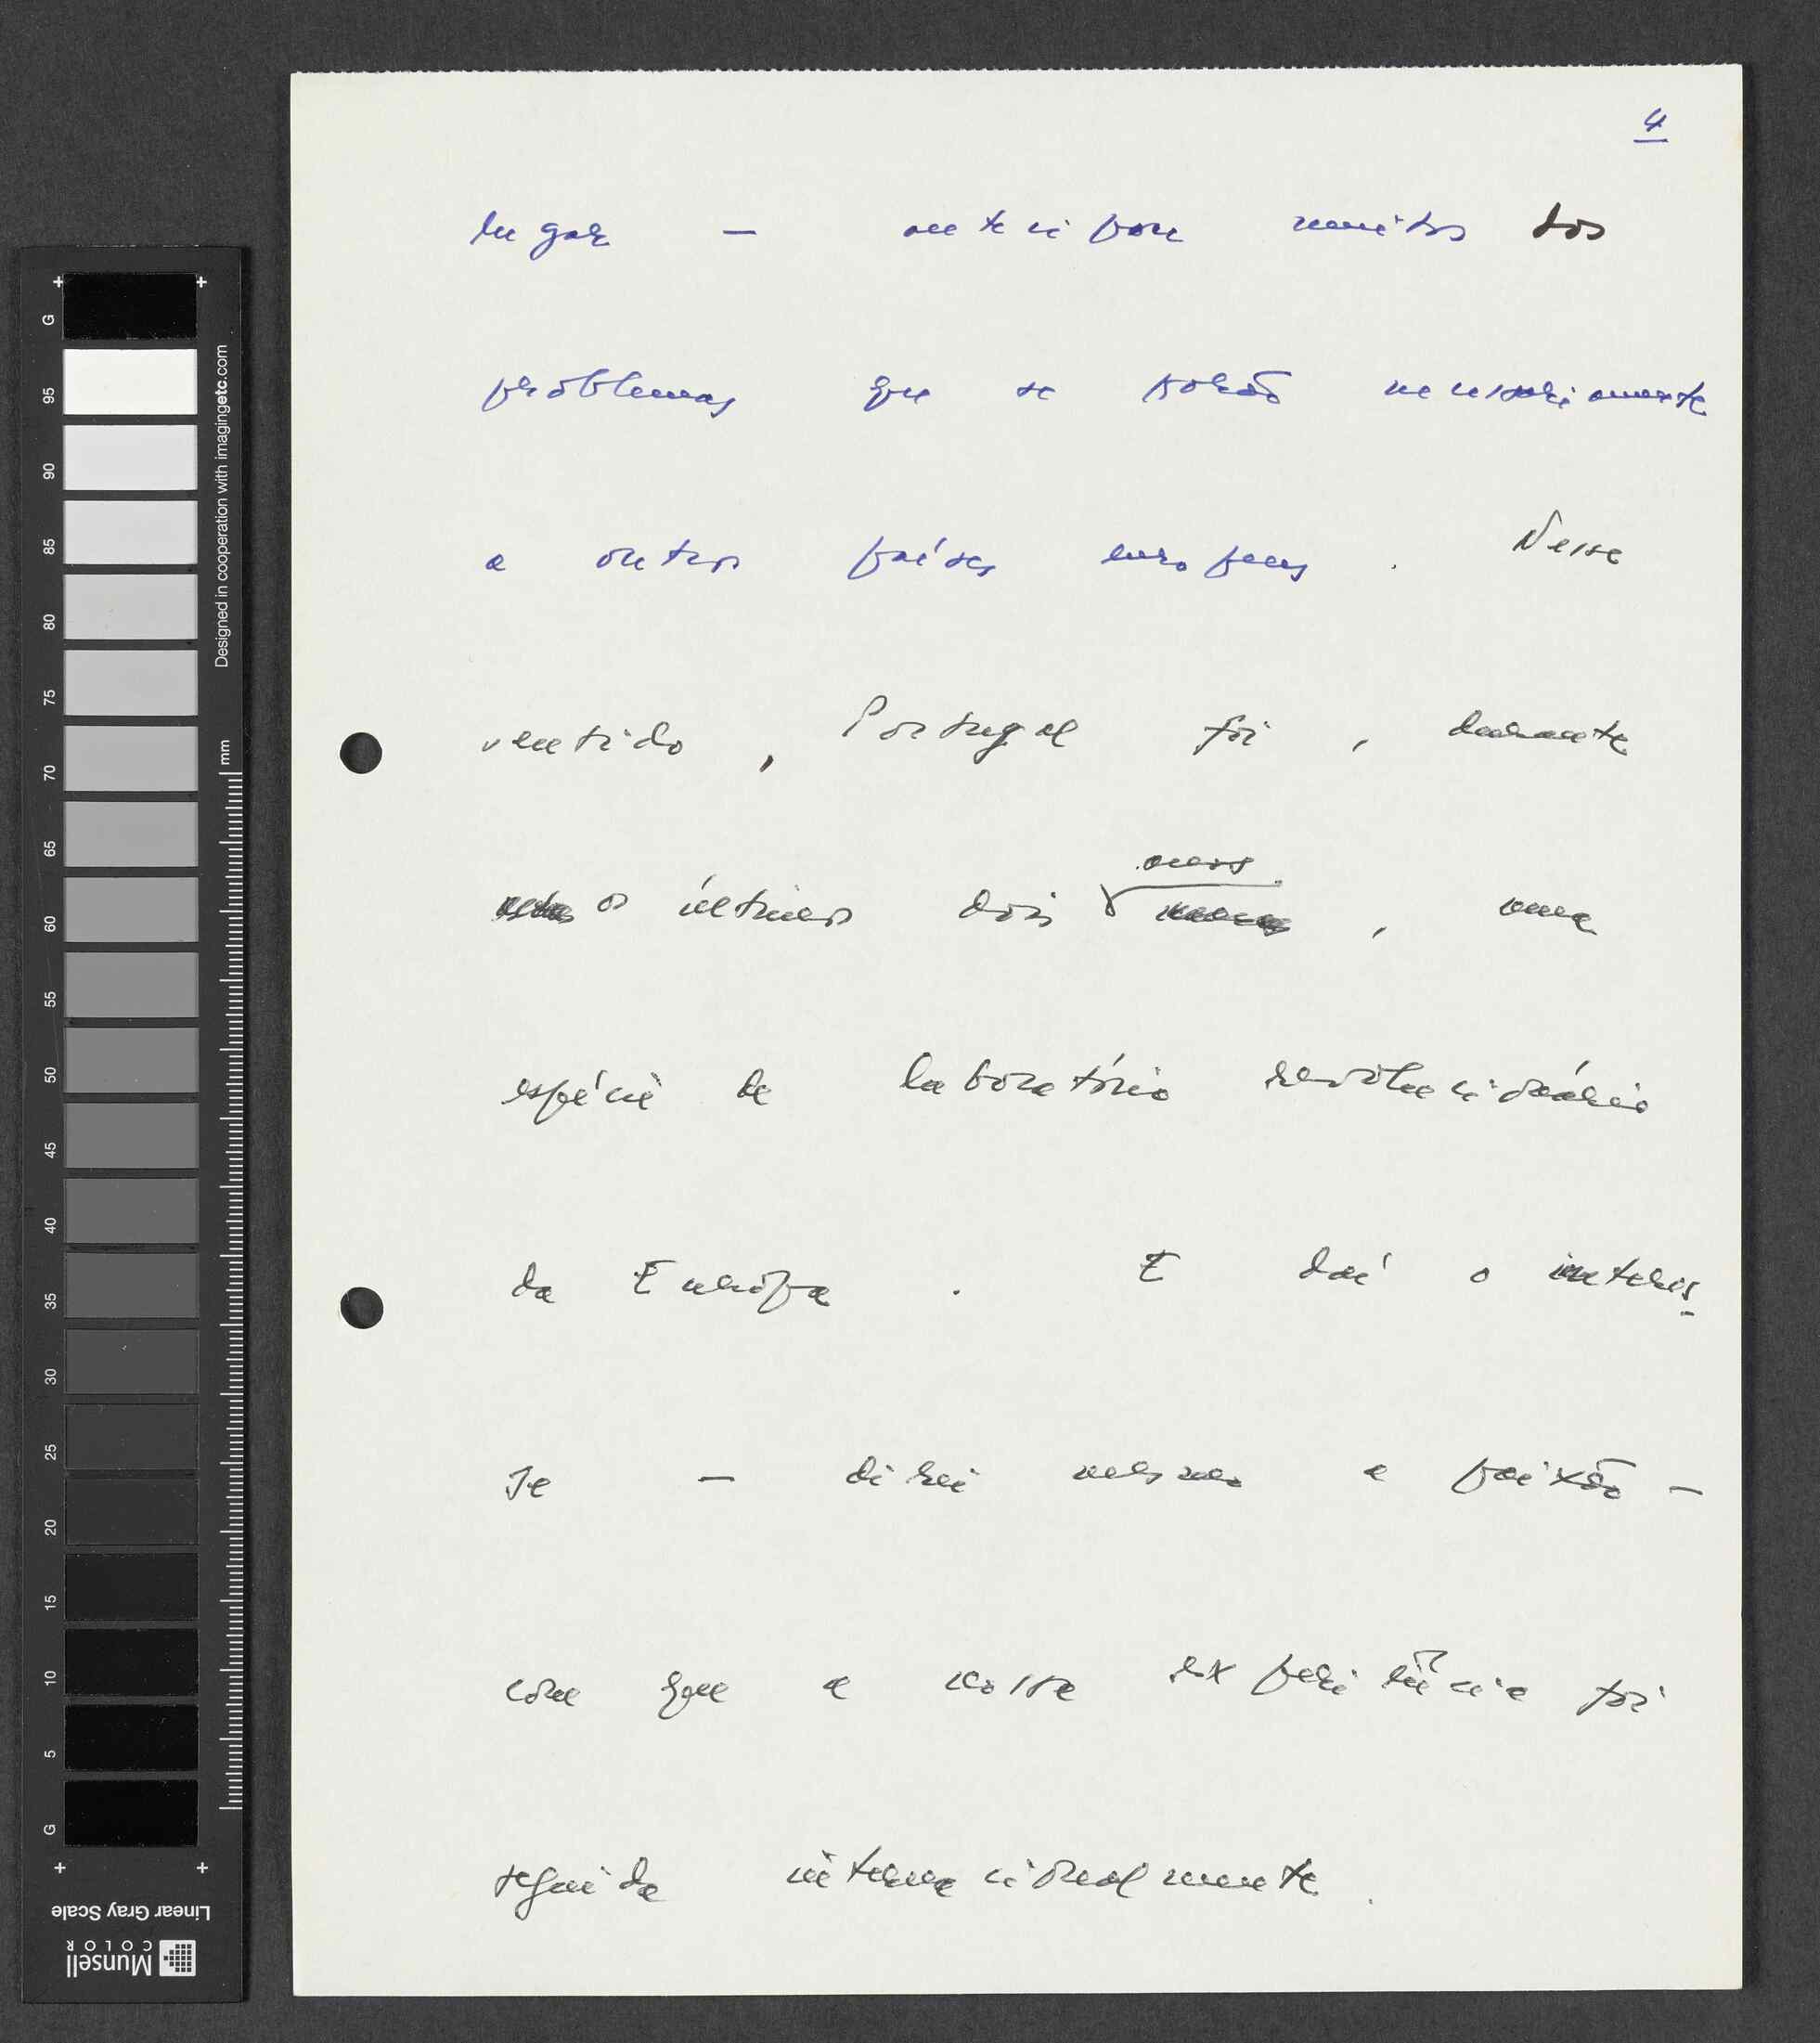 4
lugar — antecipou muitos dos
problemas que se porão necessariamente
a outros países europeus. Nesse
sentido, Portugal foi, durante
os últimos dois anos, uma
espécie de laboratório revolucionário
da Europa. E daí o interes-
se — direi mesmo a paixão —
com que a nossa experiência foi
seguida internacionalmente.
G
95
90
85
80
75
70
65
60
55
50
45
40
35
30
25
20
15
10
5
G
mm
Designed in cooperation with imagingetc.com
Linear Gray Scale
Munsell
COLOR